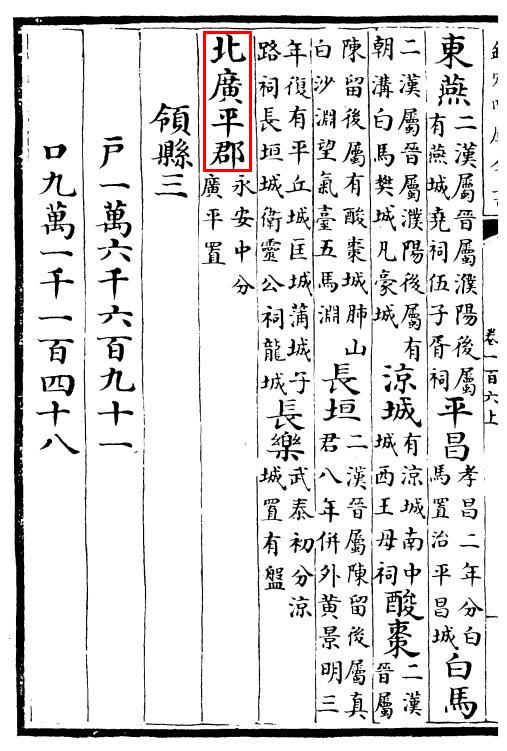 卷一百六上
東燕二漢屬晉屬濮陽後屬有燕城堯祠伍子胥祠平昌孝昌二年分白馬置治平昌城白馬
二漢屬晉屬濮陽後屬有朝溝白馬樊城凡豪城涼城有涼城南中城西王母祠酸棗二漢晉屬
陳留後屬有酸棗城肺山白沙淵望氣臺五馬淵長垣二漢晉屬陳留後屬真君八年併外黃景明三
年復有平丘城匡城蒲城子路祠長垣城衛靈公祠龍城長樂武泰初分涼城置有盤
北廣平郡永安中分廣平置
領縣三
戶一萬六千六百九十一
口九萬一千一百四十八